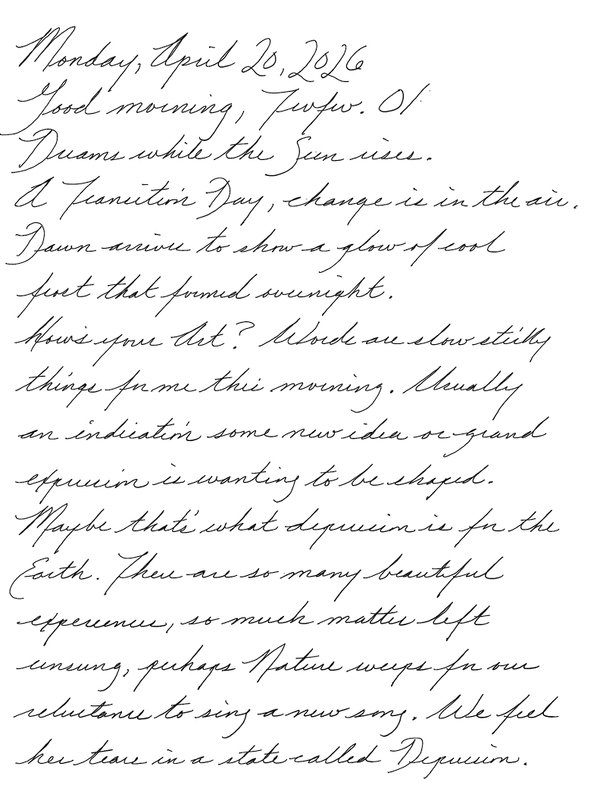 Monday, April 20, 2026
Good morning, Fwfw. 01
Dreams while the Sun rises.
A Transition Day, change is in the air.
Dawn arrives to show a glow of cool
frost that formed overnight.
How's your Art? Words are slow sticky
things for me this morning. Usually
an indication some new idea or grand
expression is wanting to be shaped.
Maybe that's what depression is for the
Earth. There are so many beautiful
experiences, so much matter left
unsung, perhaps Nature weeps for our
reluctance to sing a new song. We feel
her tears in a state called Depression.